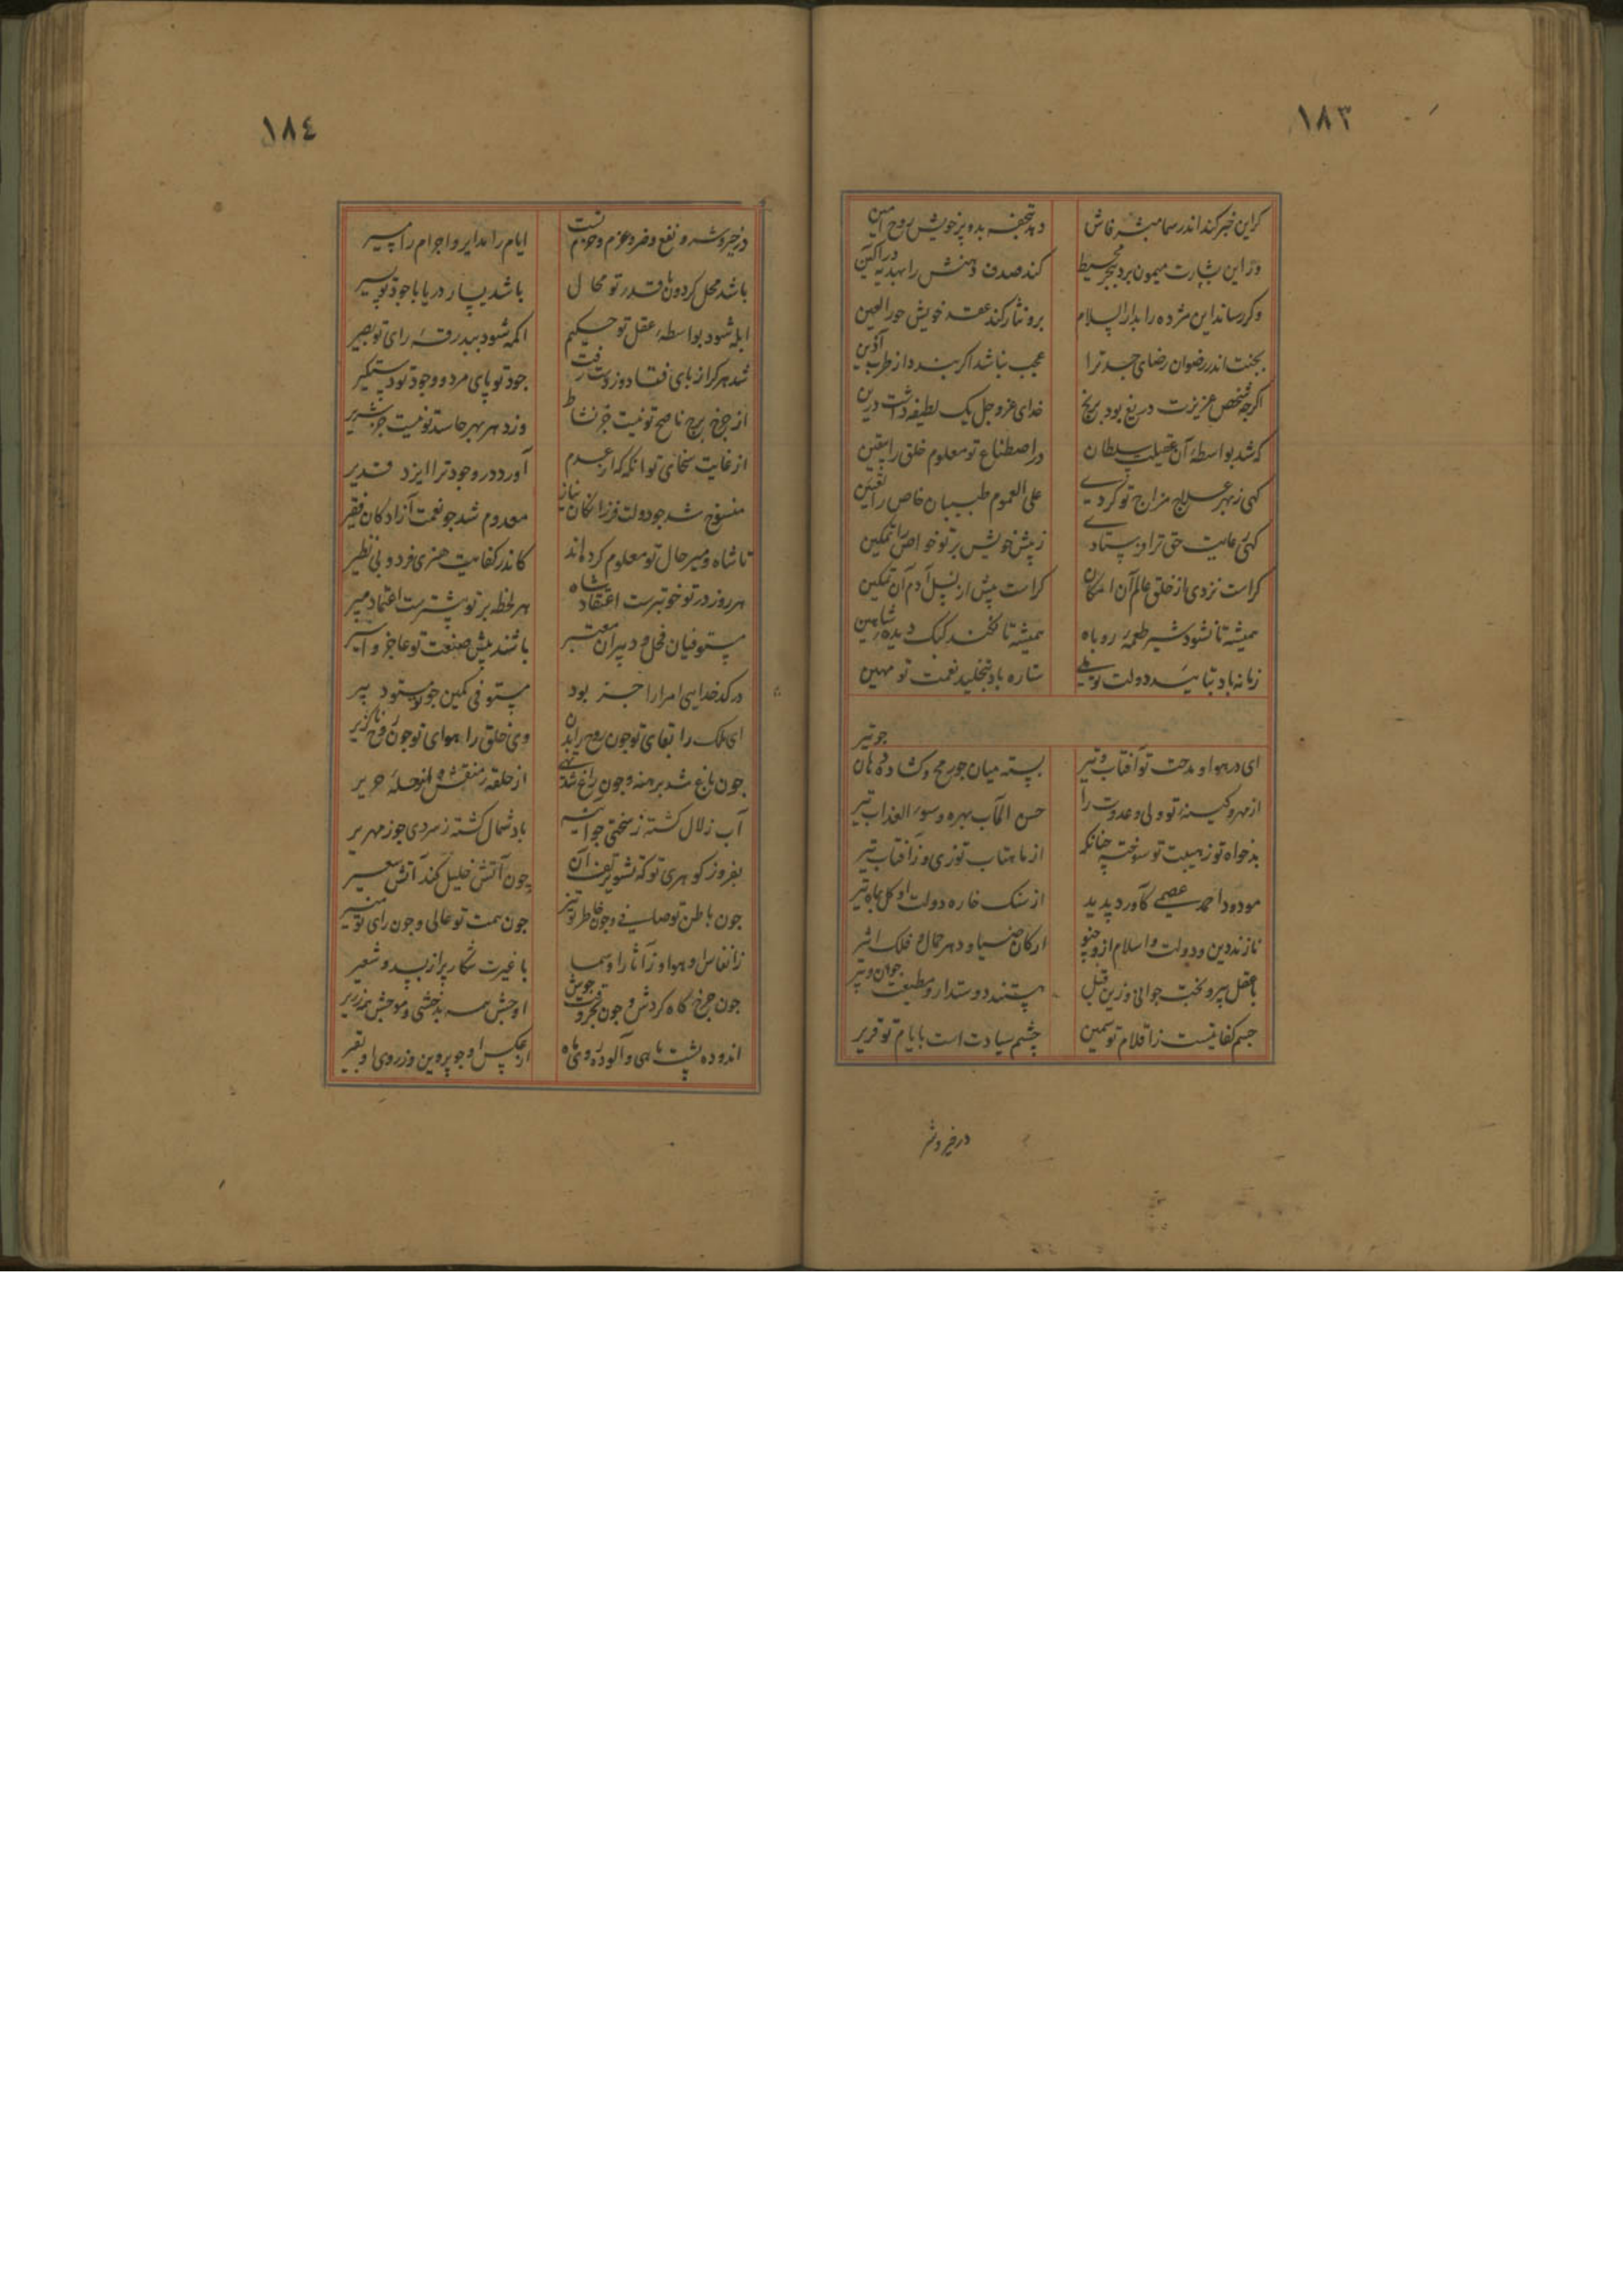 ١٨٣
کر این خبر کند اندر سما مبشر فاش
دهد تحفه بدو پر خویش روح امین
ور این بشارت میمون برد ببحر محیط
کند صدف دهنش را بهدیه در آکین
وکر رساند این مژده را بدار السلام
برو نثار کند عقد خویش حور العین
بجنت اندر رضوان رضای جد ترا
عجب نباشد اکر بندد از طرب آذین
اکرچه شخص عزیزت دریغ بود برنج
خدای عز و جل یک لطیفه داشت درین
که شد بواسطه آن عقیلت سلطان
در اصطناع تو معلوم خلق را بیقین
کهی ز بهر علاج مزاج تو کردی
علی العموم طبیبان خاص را تعیین
کهی رعایت حق ترا فرستادی
ز پیش خویش بر تو خواص را تمکین
کراست نزدی از خلق عالم آن امکان
کراست پیش از نسل آدم آن تمکین
همیشه تا نشود شیر طعمه روباه
همیشه تا نکند کبک دیده شاهین
زمانه باد بتایید دولت تو ملی
ستاره باد بتخلید نعمت تو مهین
ای در هوا و مدحت تو آفتاب و تیر
بسته میان جو رمح و کشاده دهان جو تیر
از مهر و کینه تو ولی و عدوت را
حسن المآب بهره و سوء العذاب تیر
بدخواه تو ز هیبت تو سوخته چنانکه
از ماهتاب توزی و ز آفتاب تیر
مودود احمد عصمی کآورد پدید
از سنک خاره دولت او کل بماه تیر
نازند دین و دولت و اسلام ازو چنو
ارکان ضیا و دهر جمال و فلک اثیر
با عقل پیر و بخت جوانی و زین قبل
هستند دوستدار و مطیعت جوان و پیر
جسم کفایتست ز اقلام تو سمین
چشم سیادت است بایام تو قریر
در خیر و شر
١٨٤
در خیر و شر و نفع و ضر و عزم و حزم تست
ایام را مدایر و اجرام را مسیر
باشد محل کردون با قدر تو محال
باشد یسار دریا با جود تو یسیر
ابله شود بواسطه عقل تو حکیم
اکمه شود ببدرقه رای تو بصیر
شد هر کرا ز پای فتاد و ز دست رفت
جود تو پای مرد و وجود تو دستکیر
از چرخ برج ناصح تو نیست جز نشاط
وز دهر بهر حاسد تو نیست جز شریر
از غایت سخای تو آنکه که از عدم
آورد در وجود ترا ایزد قدیر
منسوخ شد جو دولت فرزانکان نیاز
معدوم شد جو نعمت آزادکان فقیر
تا شاه و میر حال تو معلوم کرده‌اند
کاندر کفایت هنری فرد و بی نظیر
هر روز در تو خوبترست اعتقاد شاه
هر لحظه بر تو بیشترست اعتماد میر
مستوفیان فحل و دبیران معتبر
باشند پیش صنعت تو عاجز و اسیر
در کدخدایی امرا را جز بود
مستوفی کمین جو تو مستود پیر
ای ملک را بقای تو جون روح در بدن
وی خلق را هوای تو جون روح ناکزیر
جون باغ شد برهنه و جون راغ شد تهی
از حلقه منقش و از حله حریر
آب زلال کشته ز سختی جو آینه
باد شمال کشته ز سردی جو زمهریر
بفروز کوهری تو که تشویر تف آن
چون آتش خلیل کند آتش سعیر
جون باطن تو صافی و جون خاطر تو تیز
جون همت تو عالی و جون رای تو منیر
ز انفاس و هوا و ز آثار او سما
با غیرت شکار پر از بید و شعیر
جون چرخ کاه کردش و جون بحر وقت جوش
اوجش همه بدخشی و موجش همه زریر
اندوده پشت ماهی و آلوده روی ماه
از عکس او جو پروین وز روی او بقیر